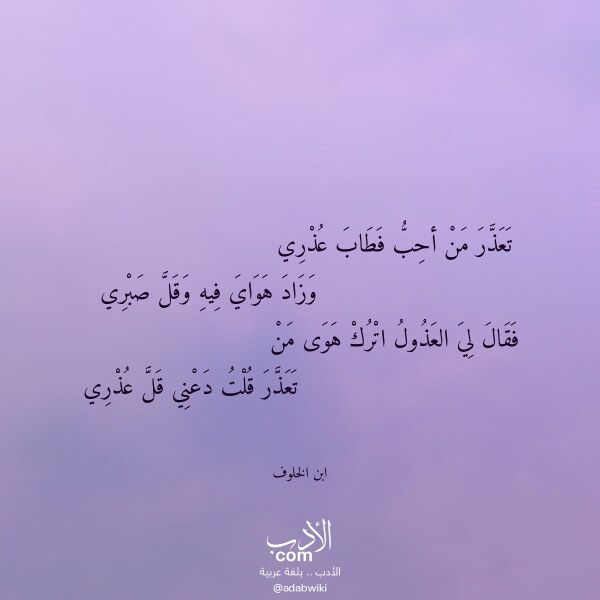 تَعَذَّرَ مَنْ أحِبُّ فَطَابَ عُذْرِي
وَزَادَ هَوَايَ فِيهِ وَقَلَّ صَبْرِي
فَقَالَ لِيَ العَذُولُ اتْرُكْ هَوَى مَنْ
تَعَذَّرَ قُلْتُ دَعْنِي قَلَّ عُذْرِي
ابن الخلوف
الأدب
.com
الأدب .. بلغة عربية
@adabwiki